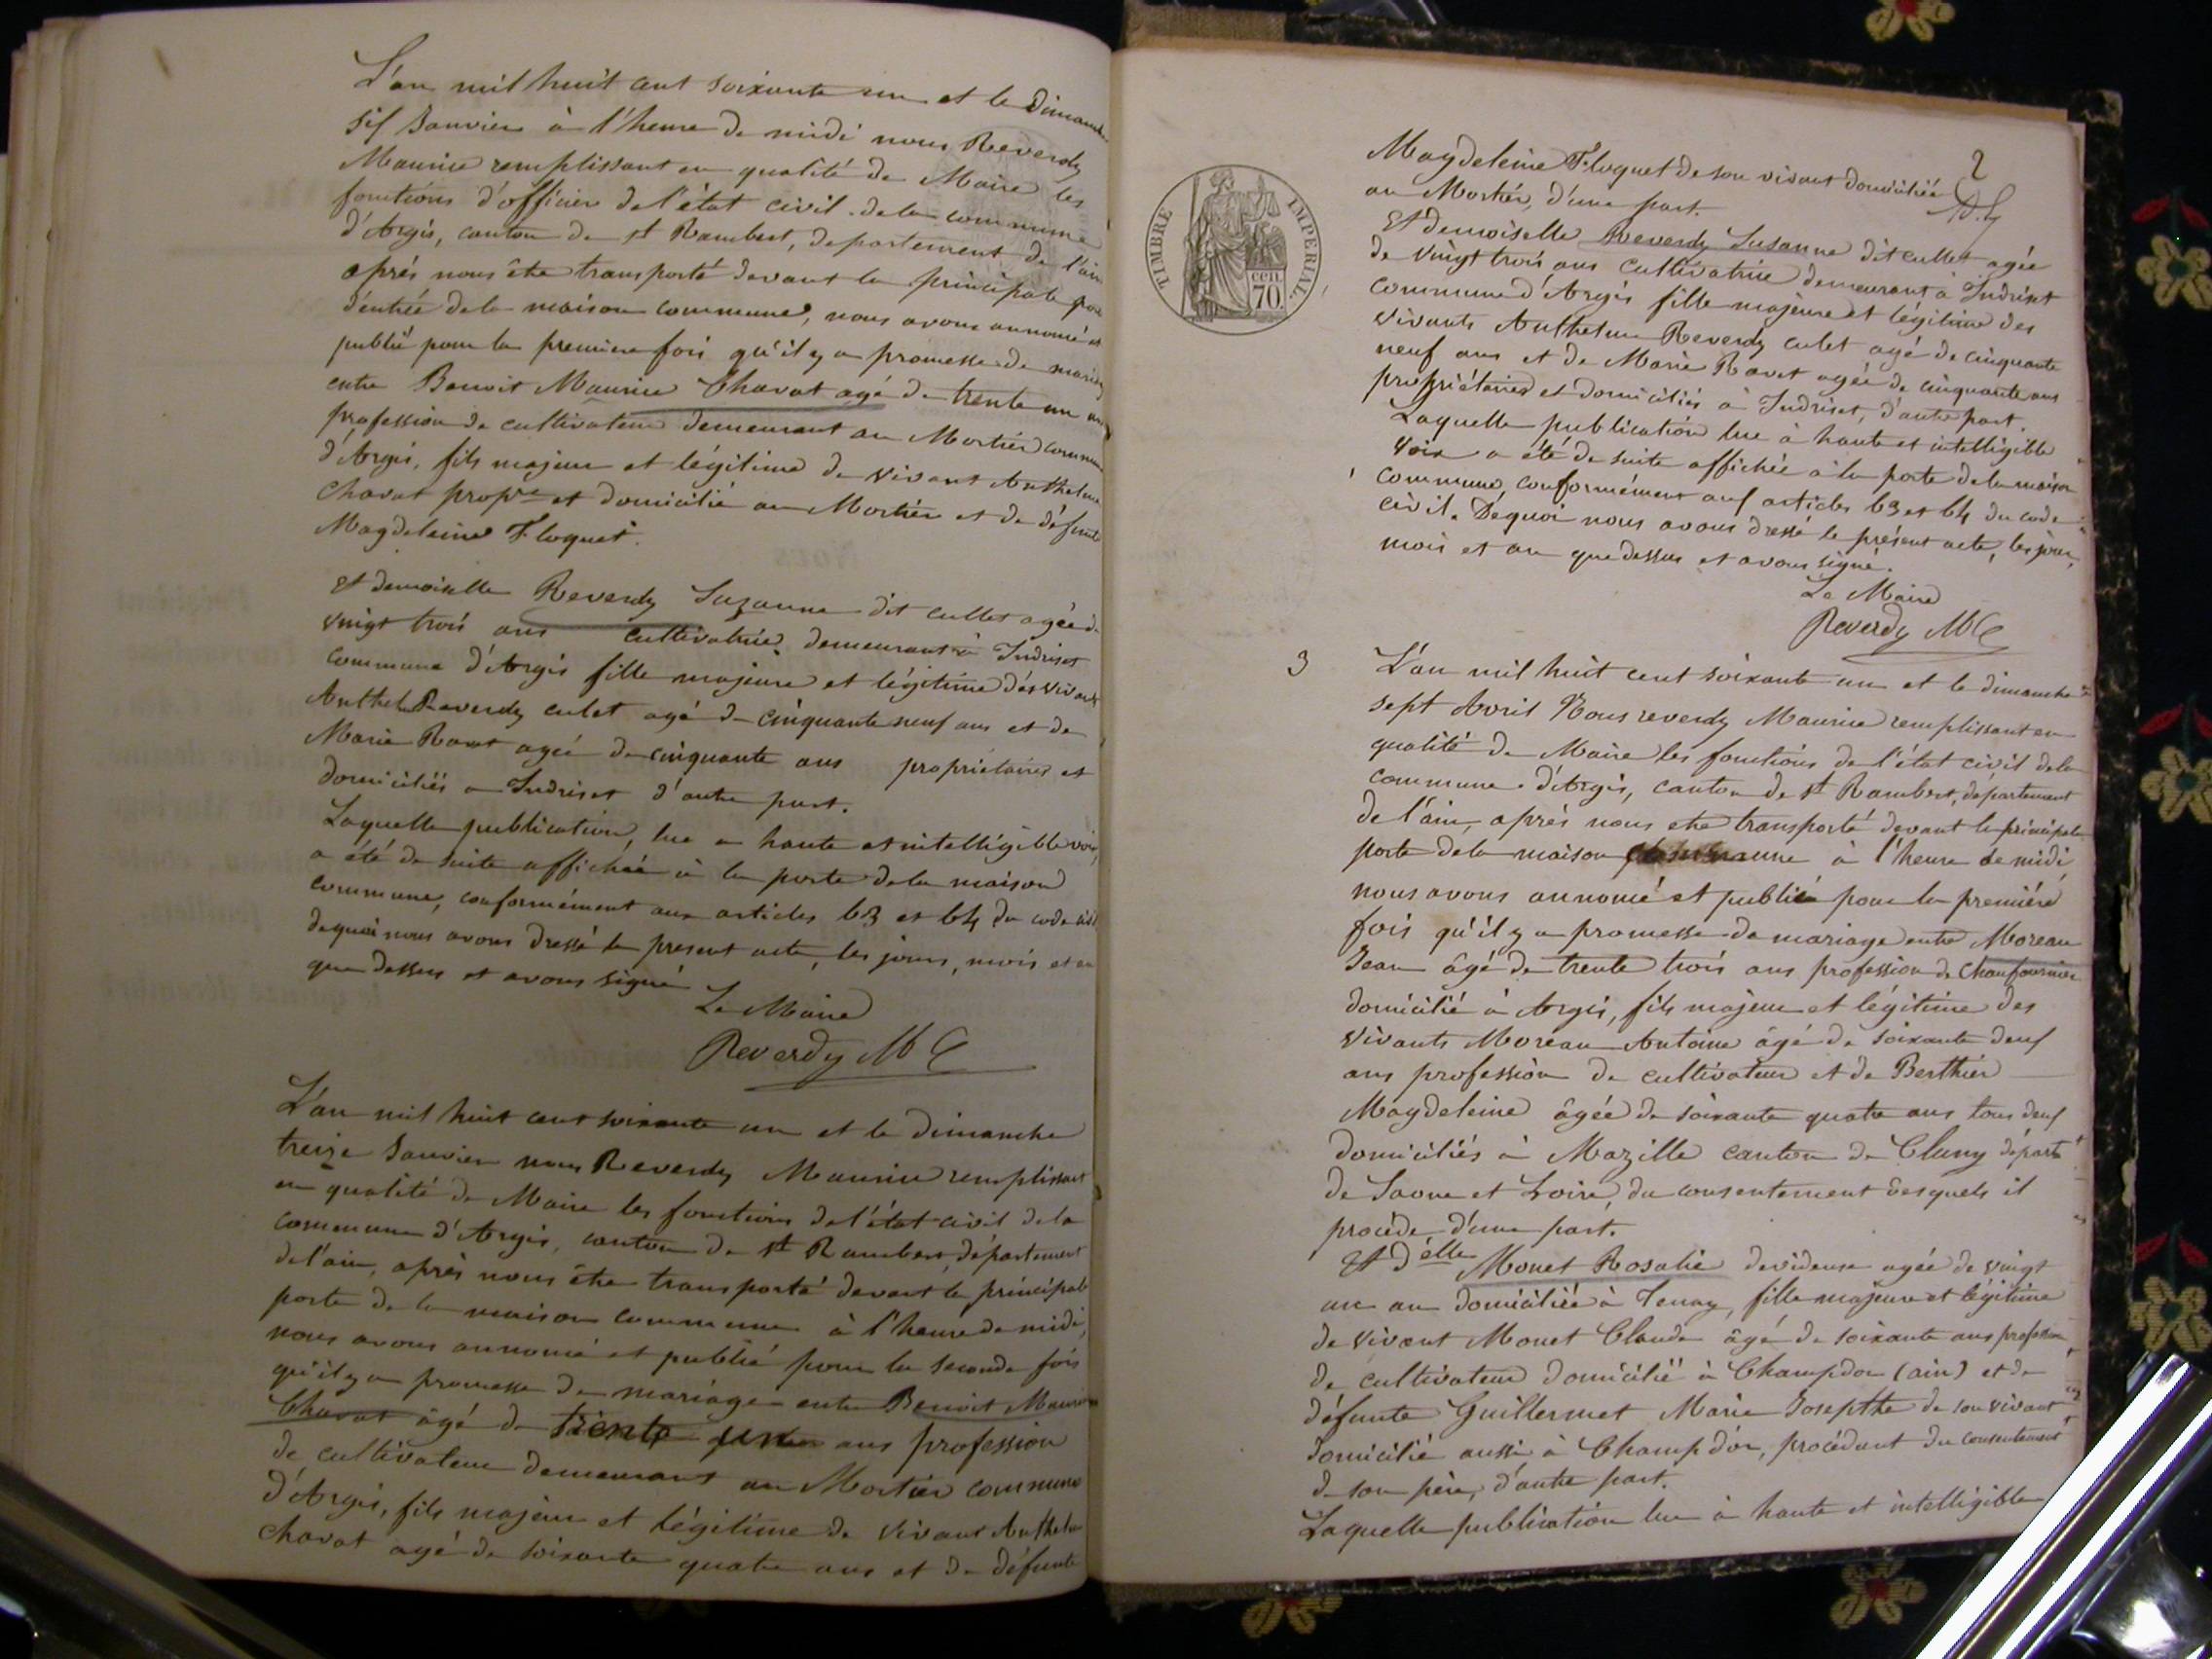 L'an mil huit cent soixante un et le Dimanche
six Janvier à l'heure de midi nous Reverdy
Maurice remplissant en qualité de Maire les
fonctions d'officier de l'état civil de la commune
d'Argis, canton de st Rambert, departement de l'ain
après nous être transporté devant la principale porte
d'entrée de la maison commune, nous avons annoncé et
publié pour la première fois qu'il y a promesse de mariage
entre Benoit Maurice Chavat agé de trente un ans
profession de cultivateur demeurant au Mortier commune
d'Argis, fils majeur et légitime de vivant Anthelme
Chavat propre et domicilié au Mortier et de défunte
Magdeleine Floquet.
Et demoiselle Reverdy Suzanne dit cullet agée de
vingt trois ans cultivatrice demeurant à Indriset
commune d'Argis fille majeure et légitime des vivants
Anthel Reverdy culet agé de cinquante neuf ans et de
Marie Ravat agée de cinquante ans propriétaires et
domiciliés a Indriset d'autre part.
Laquelle publication, lue a haute et intelligible voix,
a été de suite affichée à la porte de la maison
commune, conformément aux articles 63 et 64 du code civil
de quoi nous avons dressé le present acte, les jour, mois et an
que dessus et avons signé
Le Maire
Reverdy Mce
L'an mil huit cent soixante un et le dimanche
treize Janvier nous Reverdy Maurice remplissant
en qualité de Maire les fonctions de l'état civil de la
commune d'Argis, canton de st Rambert, département
de l'ain, après nous être transporté devant la principale
porte de la maison commune à l'heure de midi,
nous avons annoncé et publié pour la seconde fois
qu'il y a promesse de mariage entre Benoit Maurice
Chavat âgé de trente un ans profession
de cultivateur demeurant au Mortier commune
d'Argis, fils majeur et légitime de vivant Anthelme
Chavat agé de soixante quatre ans et de défunte
2
TIMBRE IMPERIAL.
cen
70.
Magdeleine Floquet de son vivant domiciliée
au Mortier, d'une part.
Et demoiselle Reverdy Susanne dit cullet agée
de vingt trois ans cultivatrice demeurant à Indriset
commune d'Argis fille majeure et légitime des
vivants Anthelme Reverdy culet agé de cinquante
neuf ans et de Marie Ravat agée de cinquante ans
propriétaires et domiciliés à Indriset, d'autre part.
Laquelle publication lue à haute et intelligible
voix a été de suite affichée à la porte de la maison
commune, conformément aux articles 63 et 64 du code
civil. De quoi nous avons dressé le présent acte, les jour,
mois et an que dessus et avons signé.
Le Maire
Reverdy Mce
3
L'an mil huit cent soixante un et le dimanche
sept Avril Nous reverdy Maurice remplissant en
qualité de Maire les fonctions de l'état civil de la
commune d'Argis, canton de st Rambert, département
de l'ain, après nous etre transporté devant la principale
porte de la maison commune à l'heure de midi,
nous avons annoncé et publié pour la première
fois qu'il y a promesse de mariage entre Moreau
Jean âgé de trente trois ans profession de chaufournier
domicilié à Argis, fils majeur et légitime des
vivants Moreau Antoine âgé de soixante deux
ans profession de cultivateur et de Berthier
Magdeleine âgée de soixante quatre ans tous deux
domiciliés à Mazille canton de Cluny départt
de Saone et Loire, du consentement desquels il
procède d'une part.
Et Delle Monet Rosalie devideuse agée de vingt
un an domiciliée à Tenay, fille majeure et légitime
de vivant Monet Claude âgé de soixante ans profession
de cultivateur domicilié à Champdor (ain) et de
défunte Guillermet Marie Josepthe de son vivant
domicilié aussi à Champ d'or, procédant du consentement
de son père, d'autre part.
Laquelle publication lue à haute et intelligible